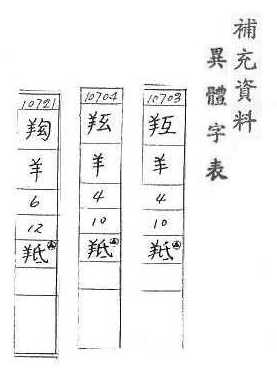 補充資料
異體字表
10703
羊
4
10
羝
10704
羊
4
10
羝
10721
羊
6
12
羝